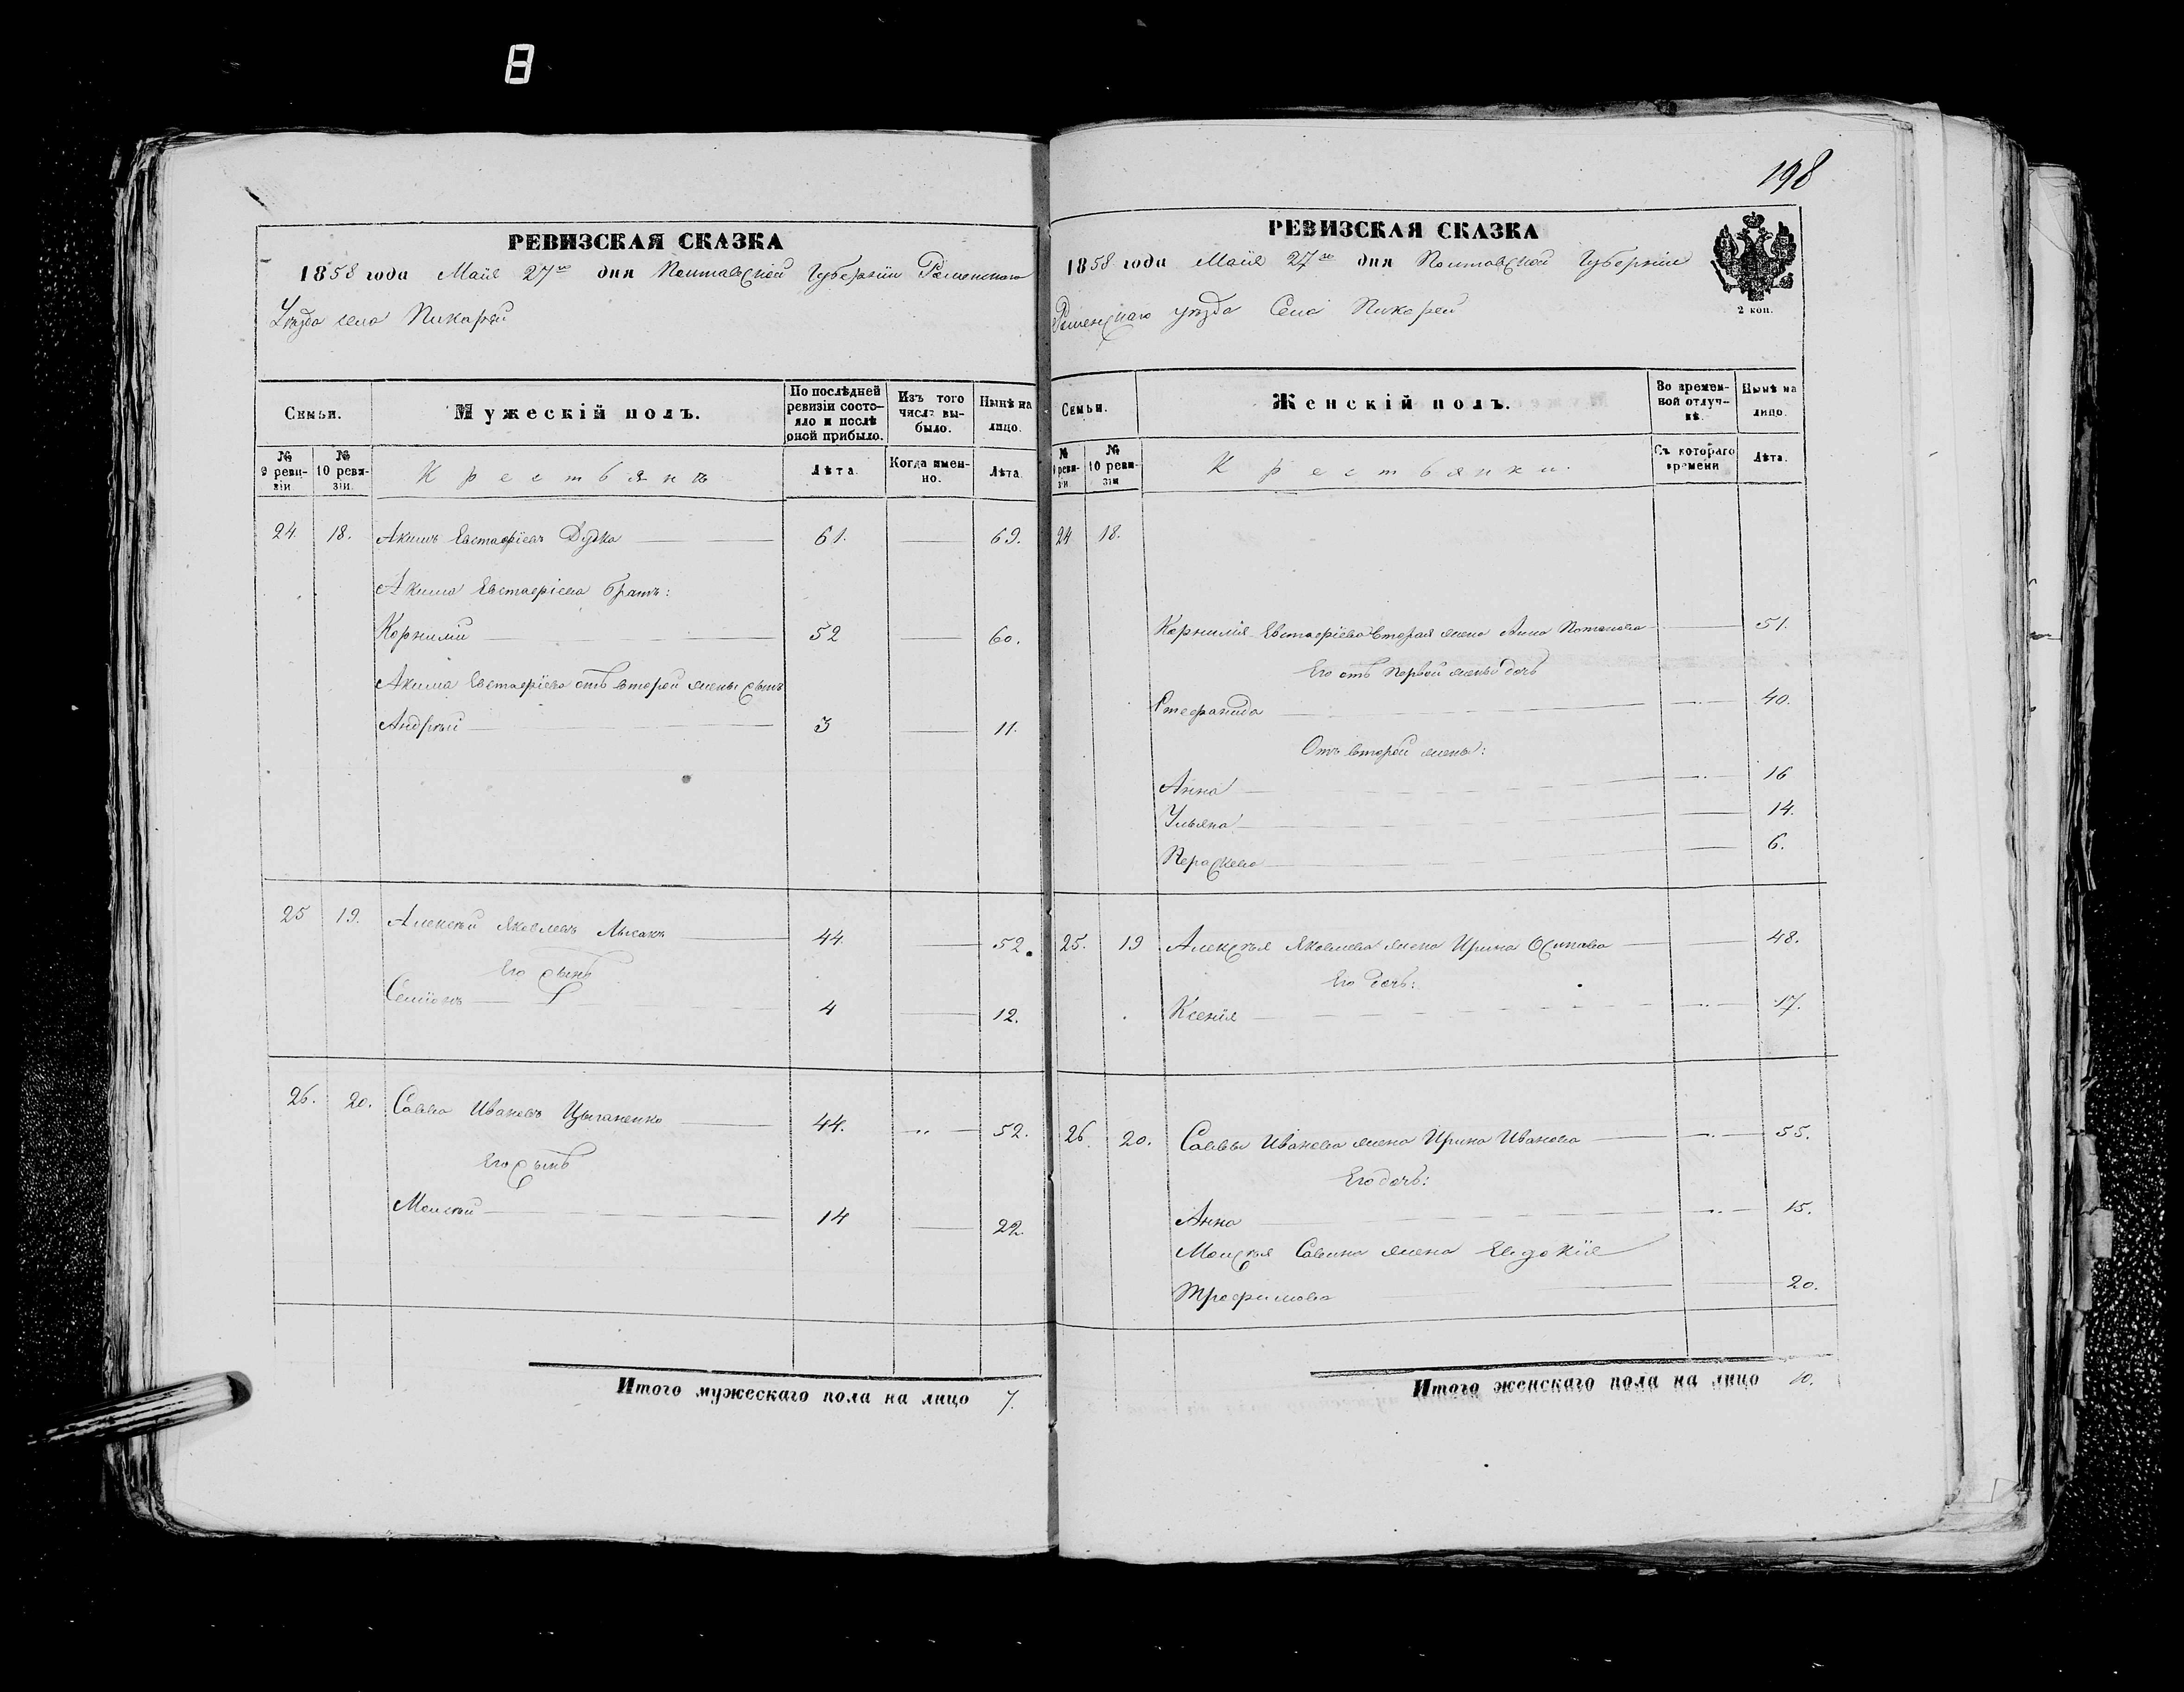 8
198
РЕВИЗСКАЯ СКАЗКА
1858 года Маія 27го дня Полтавской Губерніи Роменскаго
Уѣзда села Пикарей
Семьи.
Мужескій полъ.
По послѣдней ревизіи состояло и послѣ оной прибыло.
Изъ того числа выбыло.
Нынѣ на лицо.
№ 9 ревизіи
№ 10 ревизіи.
Крестьянъ
Лѣта.
Когда именно.
Лѣта
24. 18. Акимъ Евстафіевъ Дудка 61. 69.
Акима Евстафіева братъ:
Корнилій 52 60.
Акима Евстафіева отъ второй жены сынъ
Андрѣй 3 11.
25 19. Алексѣй Яковлевъ Лысакъ 44. 52.
Его сынъ
Семіонъ 4 12.
26. 20. Савва Ивановъ Цыганенко 44. 52.
Его сынъ
Моисѣй 14 22.
Итого мужескаго пола на лицо 7.
РЕВИЗСКАЯ СКАЗКА
1858 года Маія 27го дня Полтавской Губерніи
Роменскаго уѣзда Села Пикарей
2 коп.
Семьи.
Женскій полъ.
Во временной отлучкѣ.
Нынѣ на лицо.
№ 9 ревизіи
№ 10 ревизіи
Крестьянки.
Съ котораго времени
Лѣта.
24 18.
Корнилія Евстафіева вторая жена Анна Потапова 51.
Его отъ первой жены дочь
Стефанида 40.
Отъ второй жены:
Анна 16
Ульяна 14.
Параскева 6.
25. 19 Алексѣя Яковлева жена Ирина Осипова 48.
Его дочь:
Ксенія 17.
26. 20. Саввы Иванова жена Ирина Иванова 55.
Его дочь:
Анна 15.
Моисѣя Савина жена Евдокія
Трофимова 20.
Итого женскаго пола на лицо 10.